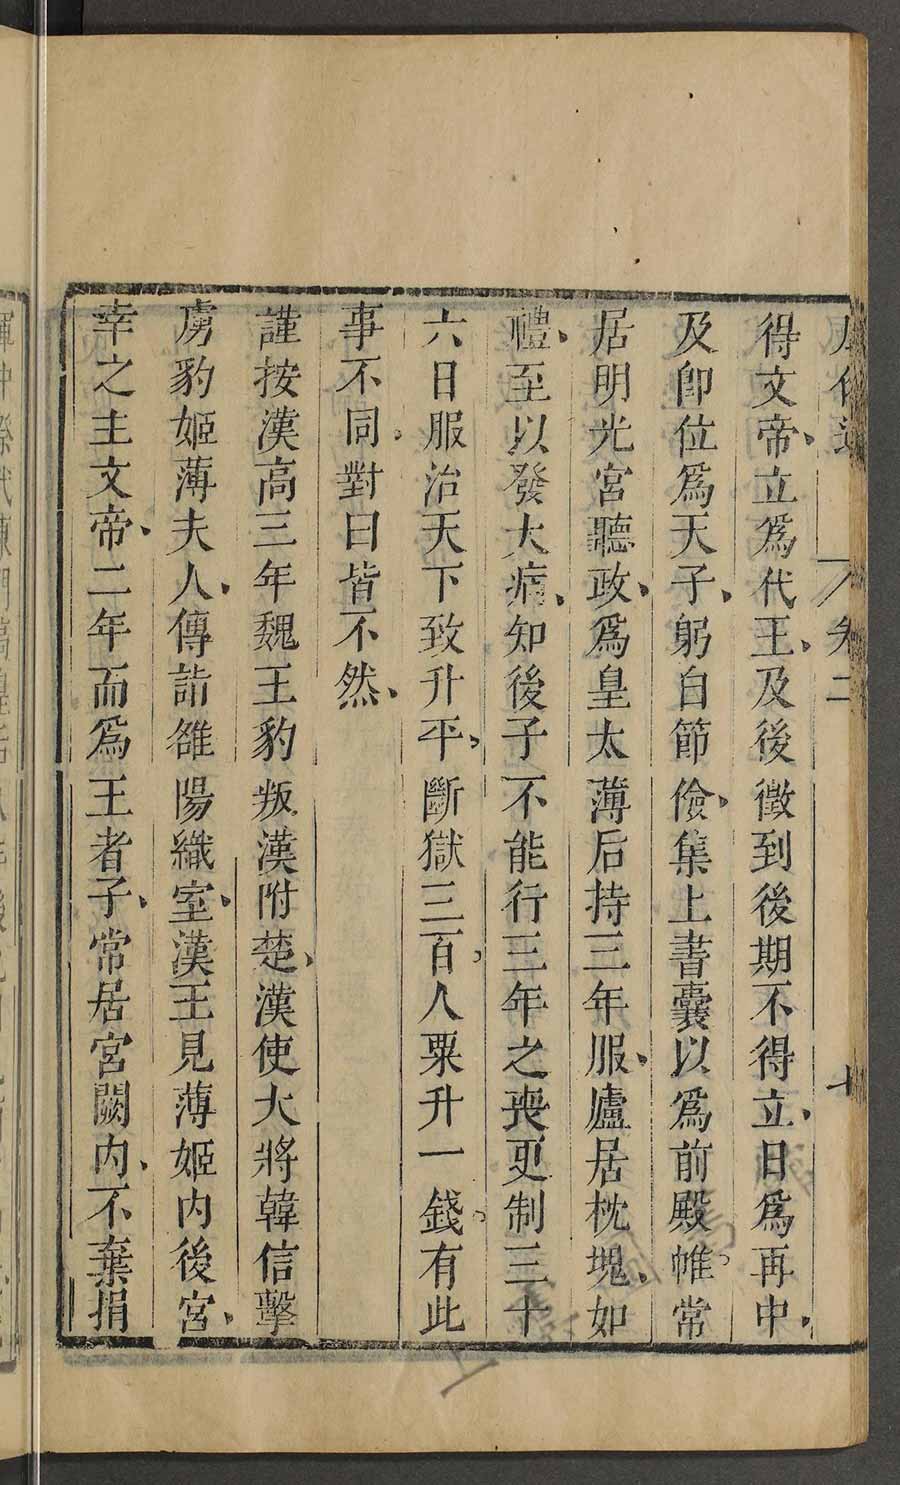 卷二
得文帝、立爲代王、及後徵到後期不得立、日爲再中、
及卽位爲天子、躬自節儉、集上書囊以爲前殿帷。常
居明光宮聽政、爲皇太薄后持三年服、廬居枕塊、如
禮、至以發大病、知後子不能行三年之喪更制三十
六日服治天下致升平、斷獄三百人粟升一錢。有此
事不同。對曰皆不然、
謹按漢高三年魏王豹叛漢附楚、漢使大將韓信擊
虜豹姬薄夫人、傳詣雒陽織室、漢王見薄姬内後宮、
幸之主文帝、二年而爲王者子、常居宮闕内、不棄捐